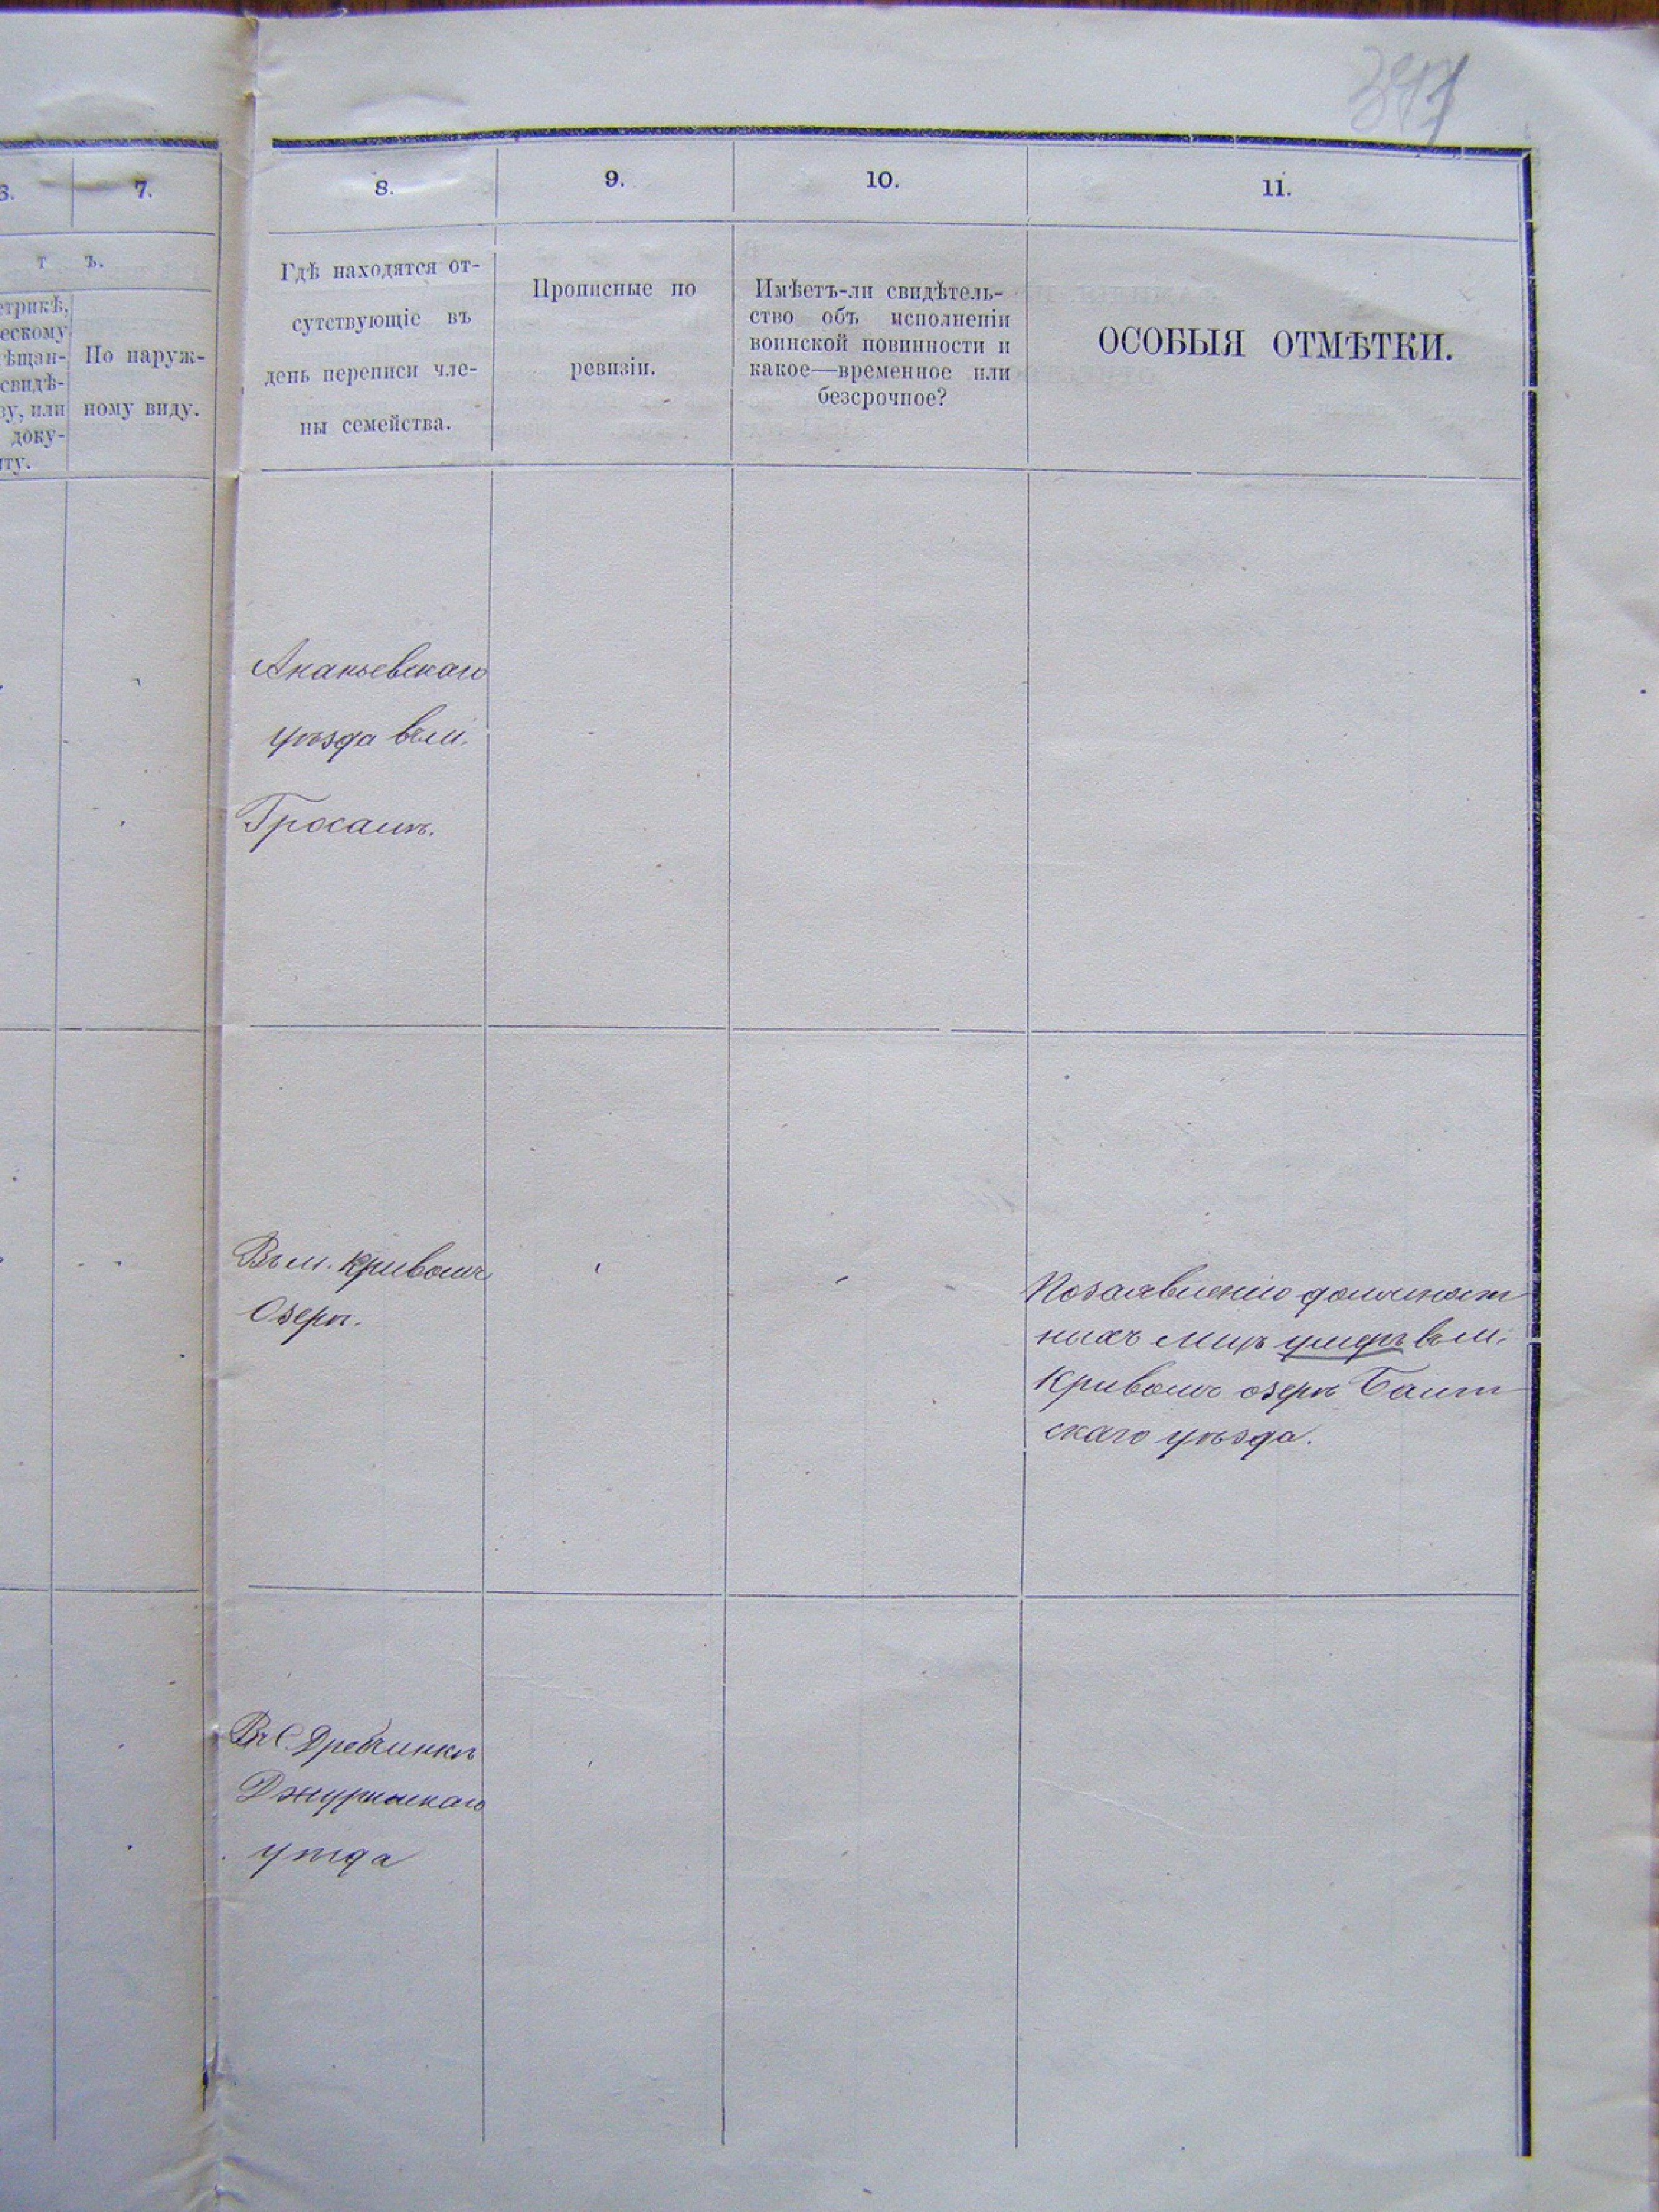 6.
7.
8.
9.
10.
11.
т ъ.
етрикѣ,
ескому
ѣщан-
свидѣ-
ву, или
доку-
нту.
По наруж-
ному виду.
Гдѣ находятся от-
сутствующіе въ
день переписи чле-
ны семейства.
Прописные по
ревизіи.
Имѣетъ-ли свидѣтель-
ство объ исполненіи
воинской повинности и
какое—временное или
безсрочное?
ОСОБЫЯ ОТМѢТКИ.
Ананьевскаго
уѣзда въ м.
Въ м. Кривомъ
Озерѣ.
По заявленію должност
ныхъ лицъ въ м.
Кривомъ озерѣ Балт
скаго уѣзда.
Въ С.
уѣзда